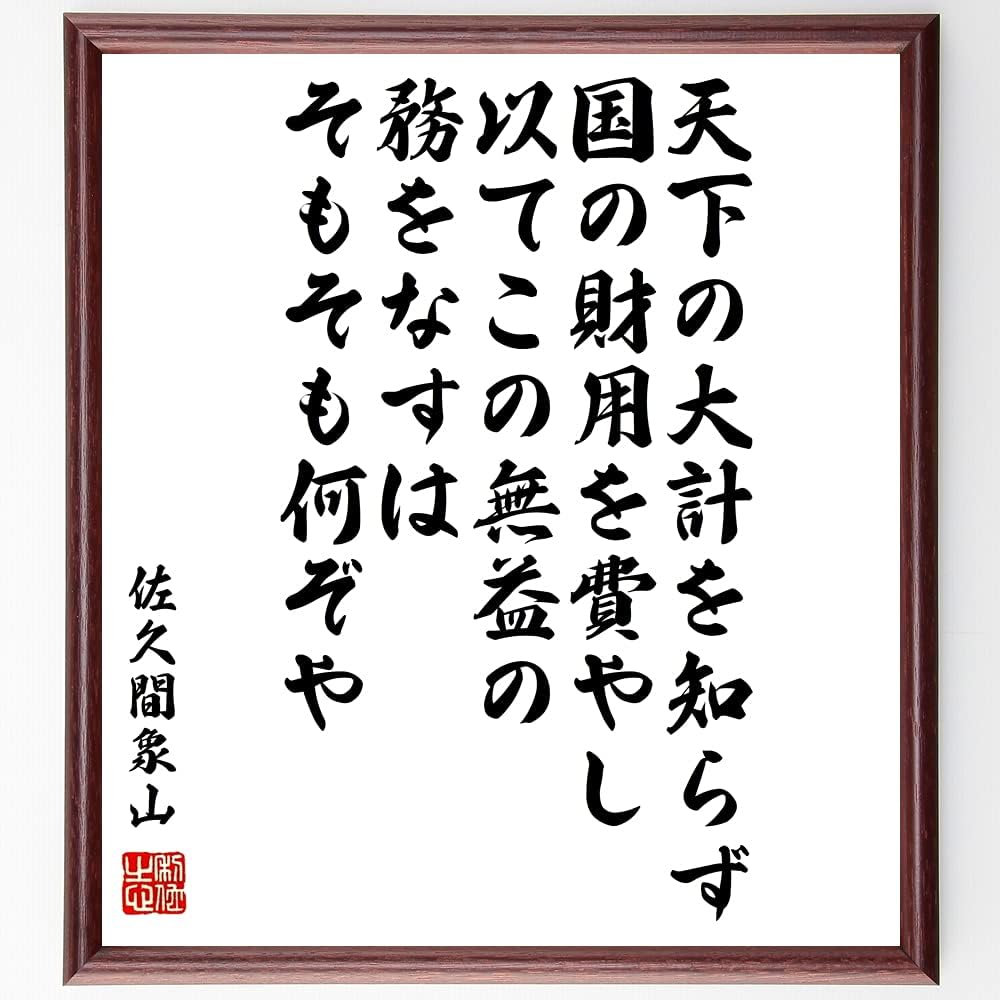 天下の大計を知らず
国の財用を費やし
以てこの無益の
務をなすは
そもそも何ぞや
佐久間象山